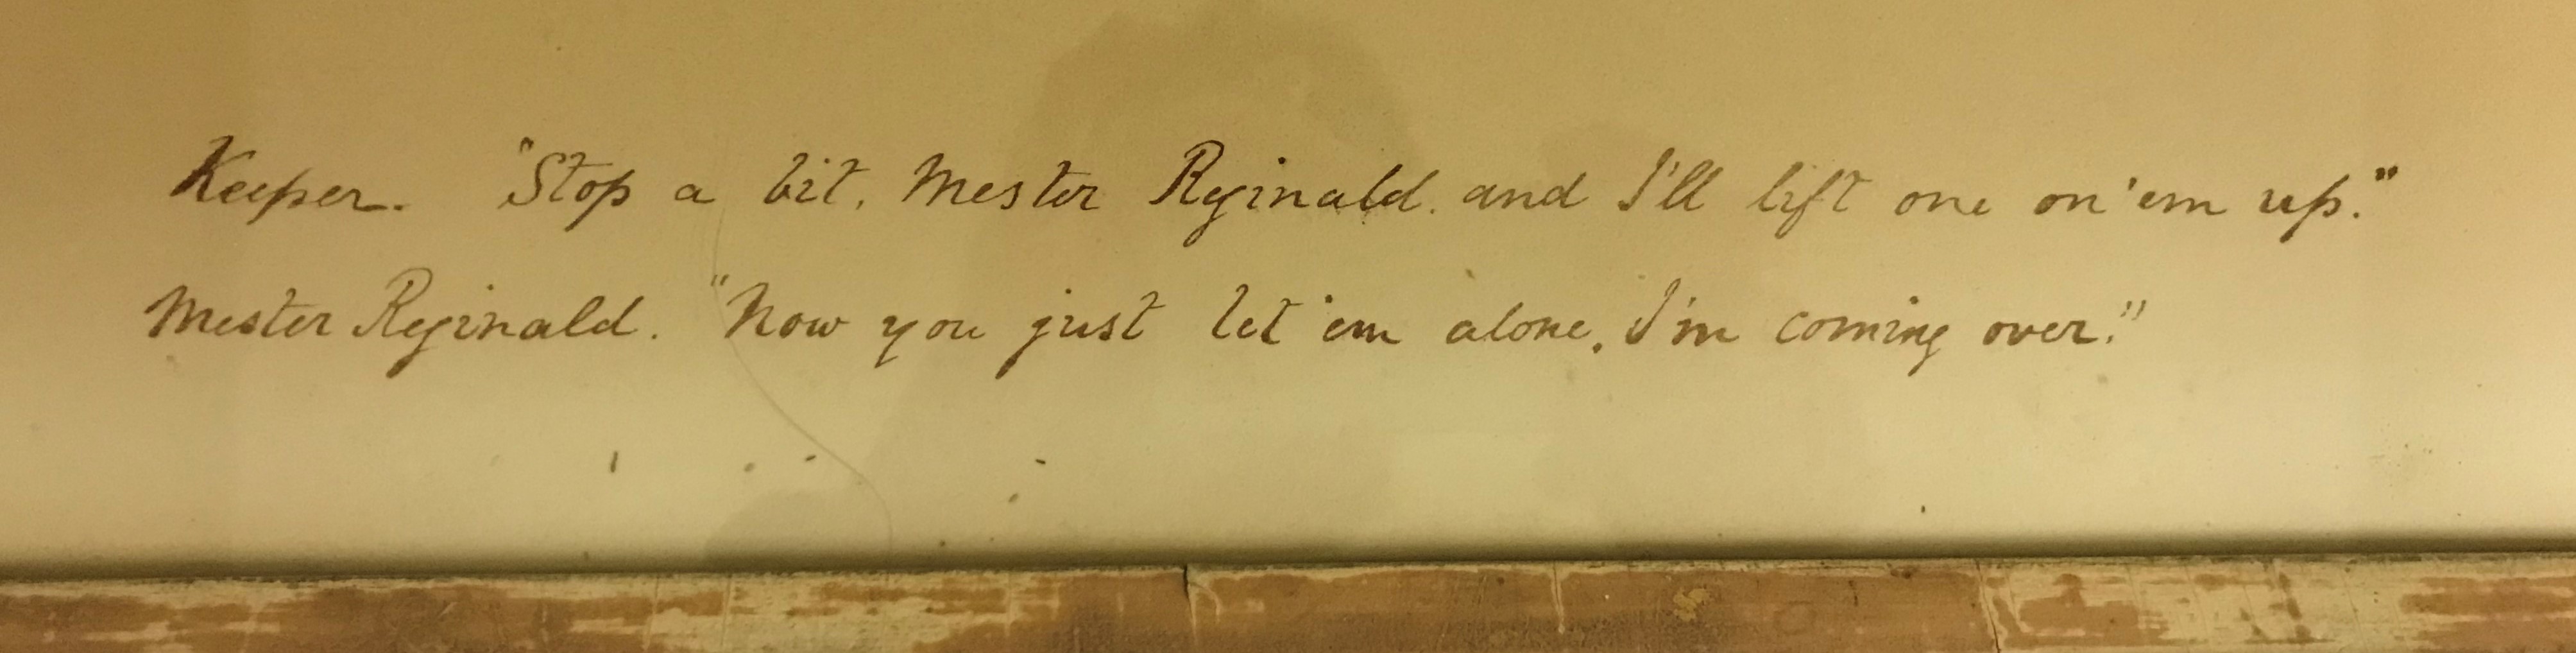 Keeper. "Stop a bit, Mester Reginald. and I'll lift one on 'em up."
Mester Reginald. "Now you just let 'em alone, I'm coming over."